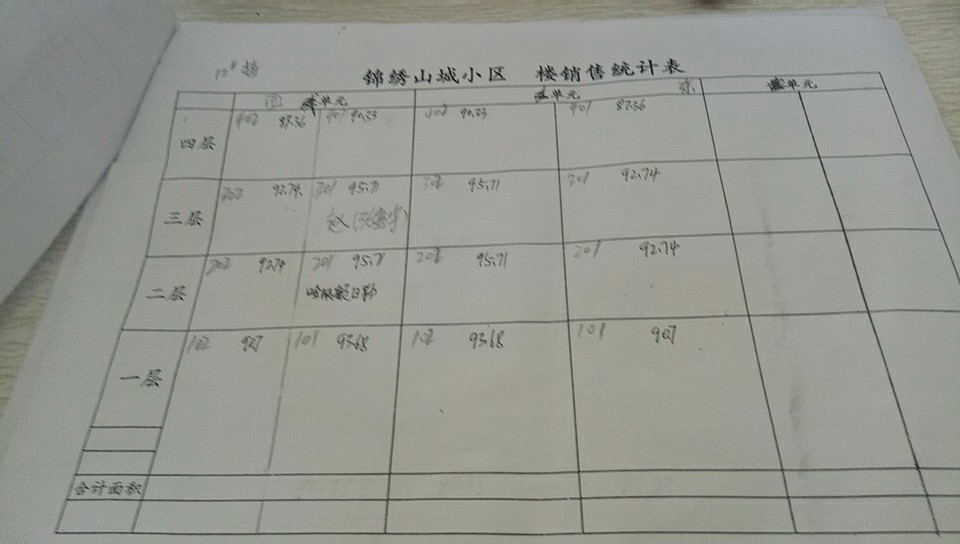 12# 楼
锦绣山城小区 楼销售统计表
西 单元 单元 东 单元
四层 402 87.36 401 90.33 402 90.33 401 87.36
三层 302 92.74 301 95.71 302 95.71 301 92.74
二层 202 92.74 201 95.71 202 95.71 201 92.74
一层 102 90.7 101 93.68 102 93.68 101 90.7
合计面积